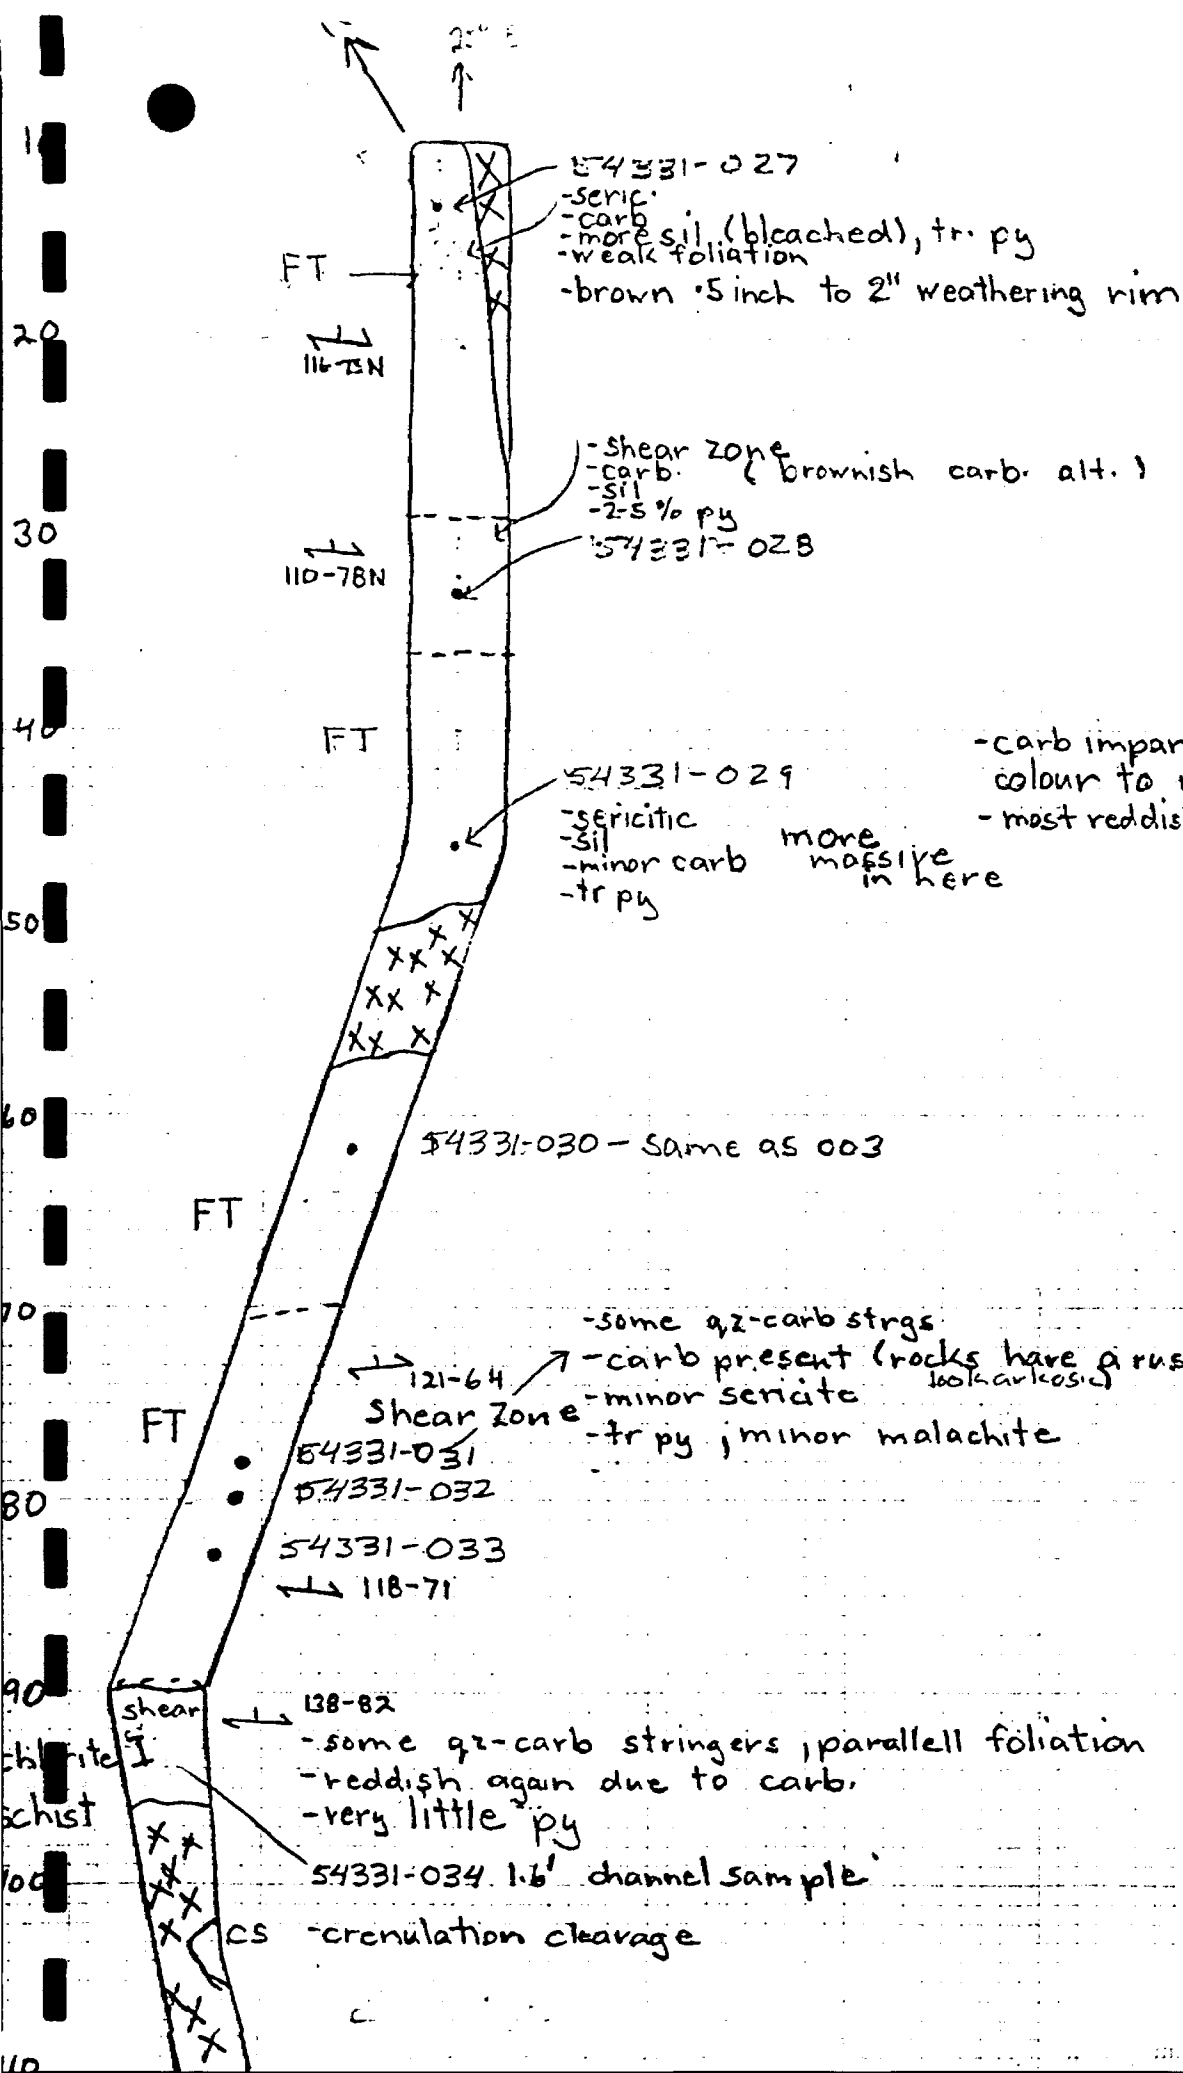 54331-027
-seric.
-carb
-more sil (bleached), tr. py
-weak foliation
-brown .5 inch to 2" weathering rim
FT
20
116-75N
-shear zone
-carb. (brownish carb. alt.)
-sil
-2-5% py
30
54331-028
110-78N
40
FT
-carb impar
colour to
-most reddis
54331-029
-sericitic
-sil
-minor carb
-tr py
more
massive
in here
50
60
54331-030 - same as 003
FT
70
-some qz-carb strgs
-carb present (rocks have a rus
look arkosic)
-minor sericite
-tr py ; minor malachite
121-64
Shear Zone
FT
54331-031
54331-032
80
54331-033
118-71
90
shear
138-82
-some qz-carb stringers ; parallell foliation
-reddish again due to carb.
-very little py
chlorite
schist
54331-034 1.6' channel sample
100
CS -crenulation cleavage
110